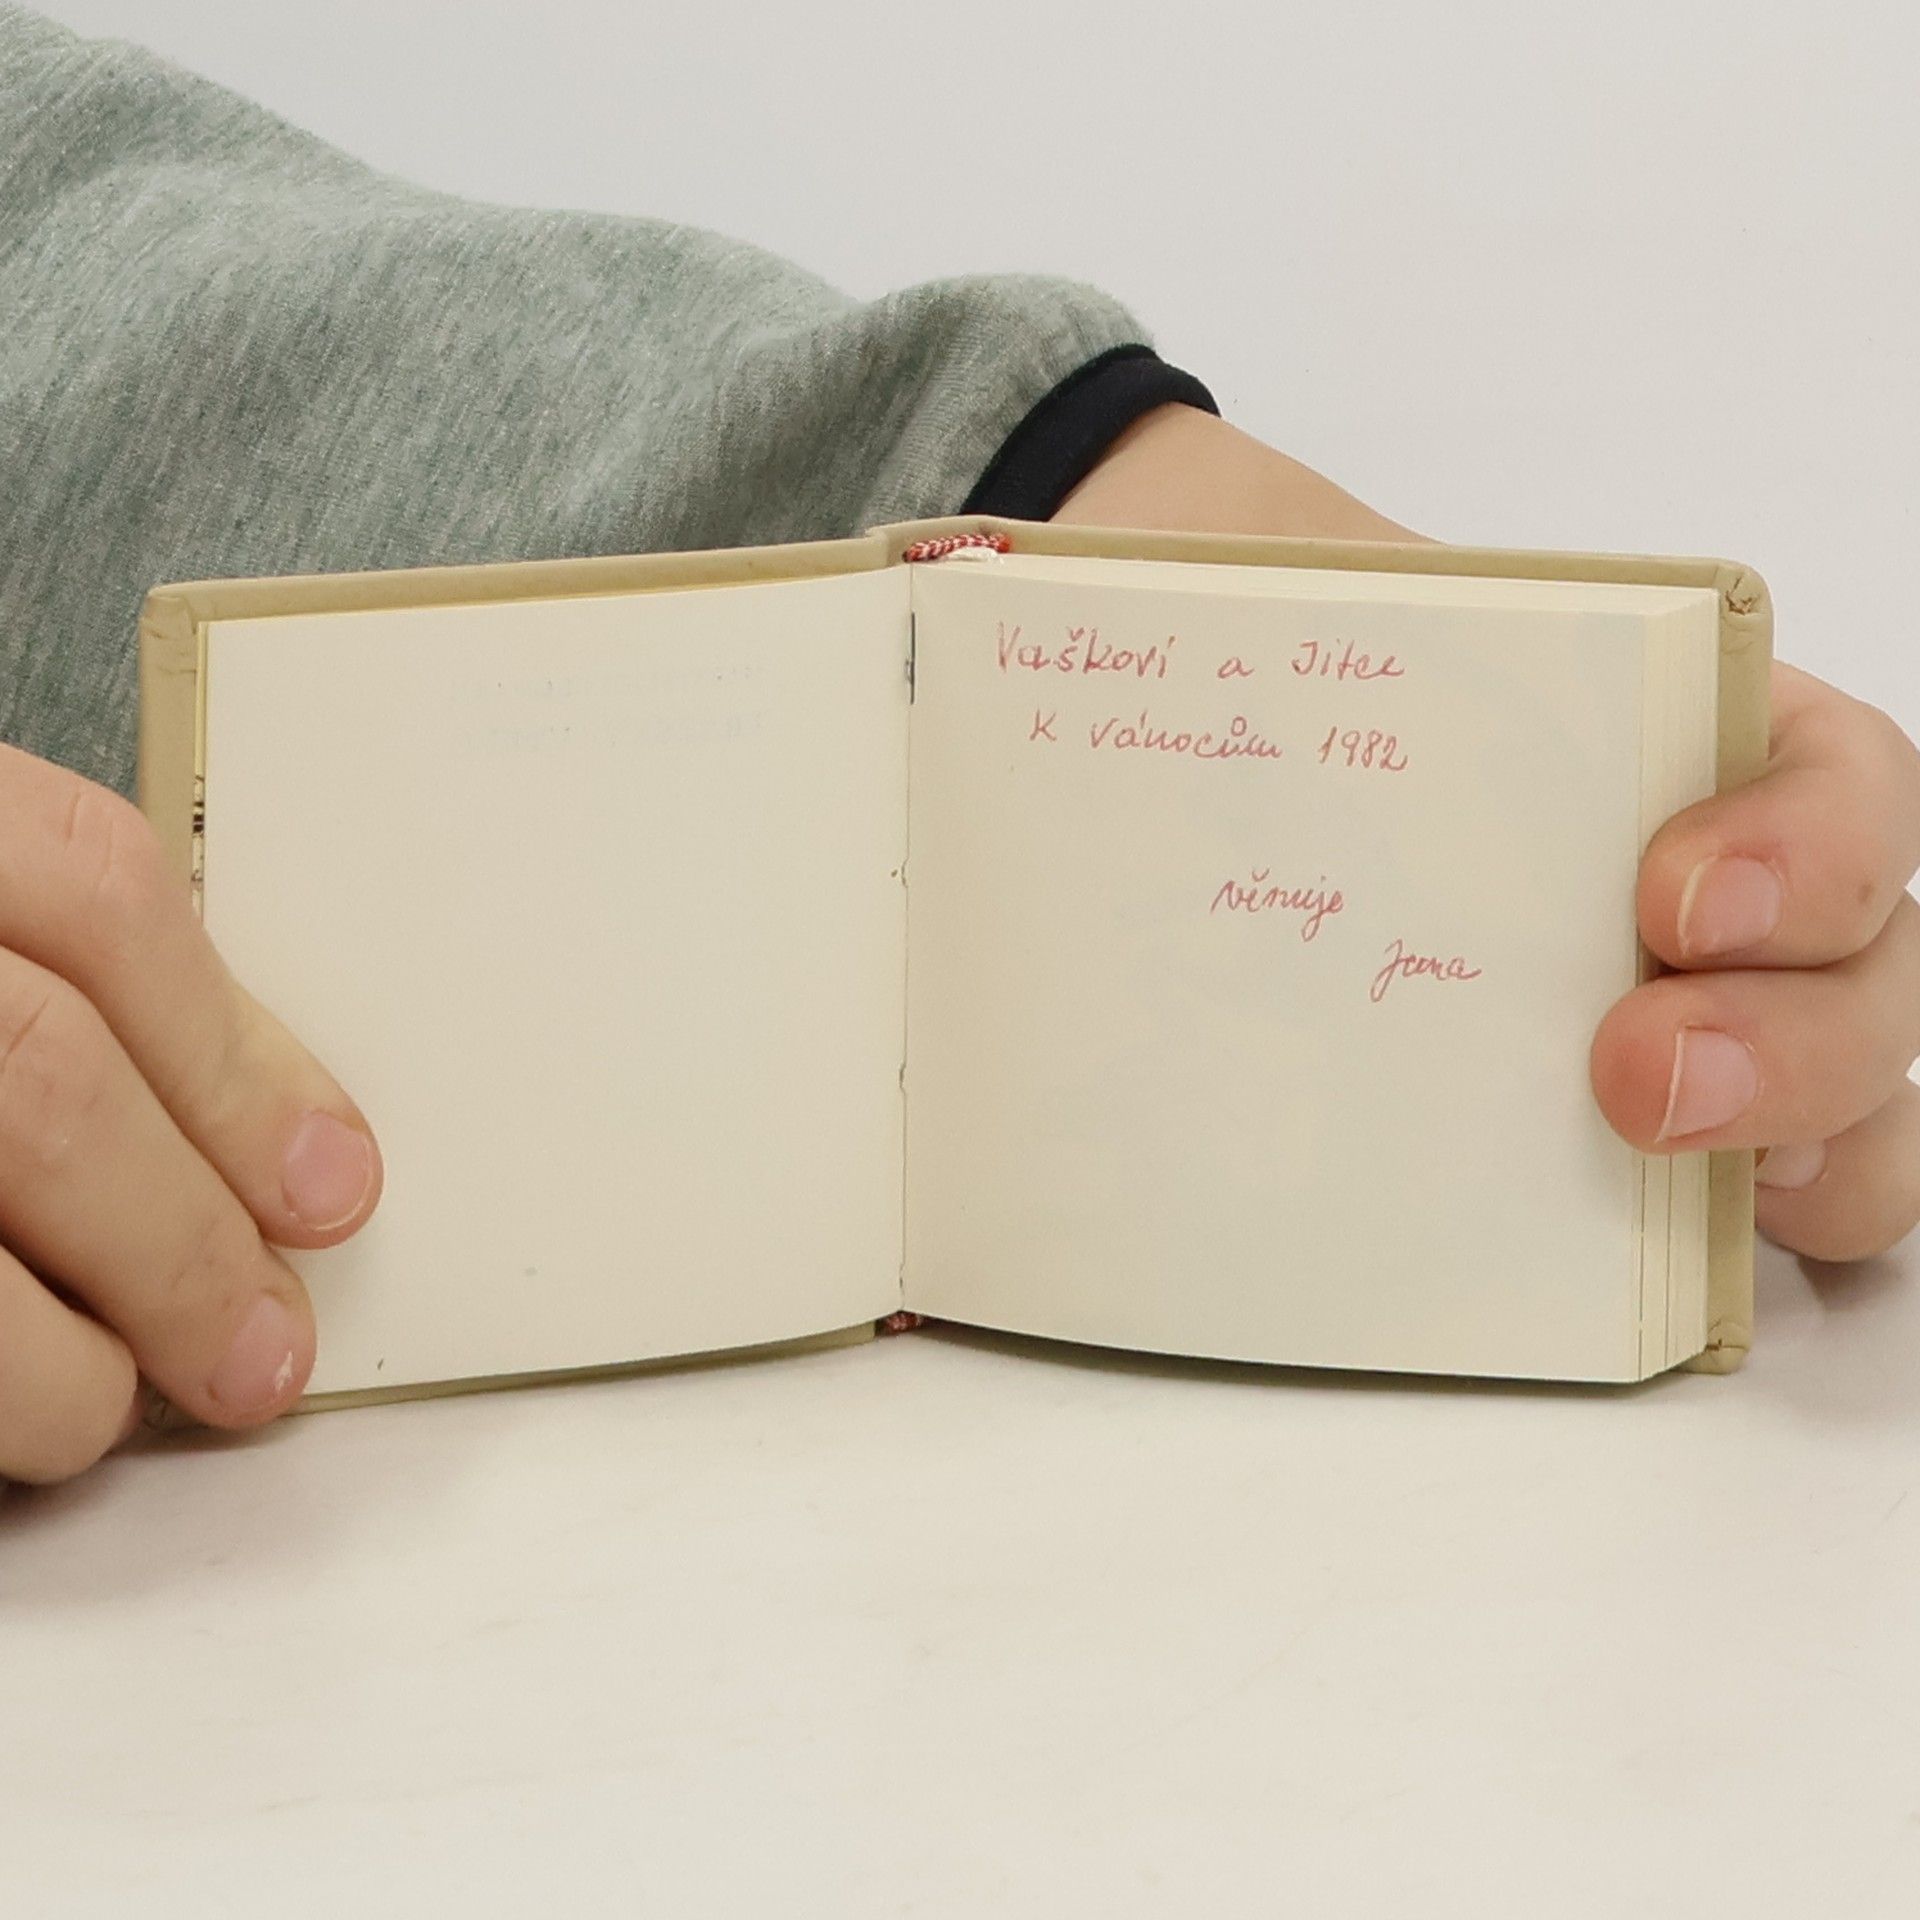 Vaškovi a Jitce
K vánocům 1982
věnuje
Jana